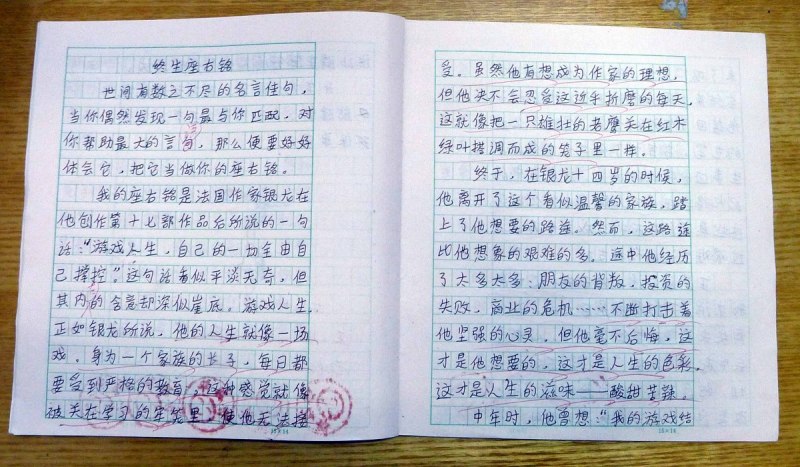 终生座右铭
世间有数之不尽的名言佳句，
当你偶然发现一句最与你匹配，对
你帮助最大的言句，那么便要好好
体会它，把它当做你的座右铭。
我的座右铭是法国作家银龙在
他创作第十七部作品后所说的一句
话："游戏人生，自己的一切全由自
己撑控"。这句话看似平淡无奇，但
其内的含意却深似崖底。游戏人生，
正如银龙所说，他的人生就像一场
戏。身为一个家族的长子，每日都
要受到严格的教育，这种感觉就像
被关在学习的牢笼里，使他无法接
受。虽然他有想成为作家的理想，
但他决不会忍受这近乎折磨的每天，
这就像把一只雄壮的老鹰关在红木
绿叶搭调而成的笼子里一样。
终于，在银龙十四岁的时候，
他离开了这个看似温馨的家族，踏
上了他想要的路途。然而，这路途
比他想象的艰难的多。途中他经历
了太多太多：朋友的背叛，投资的
失败，商业的危机……不断打击着
他坚强的心灵，但他毫不后悔，这
才是他想要的，这才是人生的色彩，
这才是人生的滋味——酸甜苦辣。
中年时，他曾想："我的游戏结